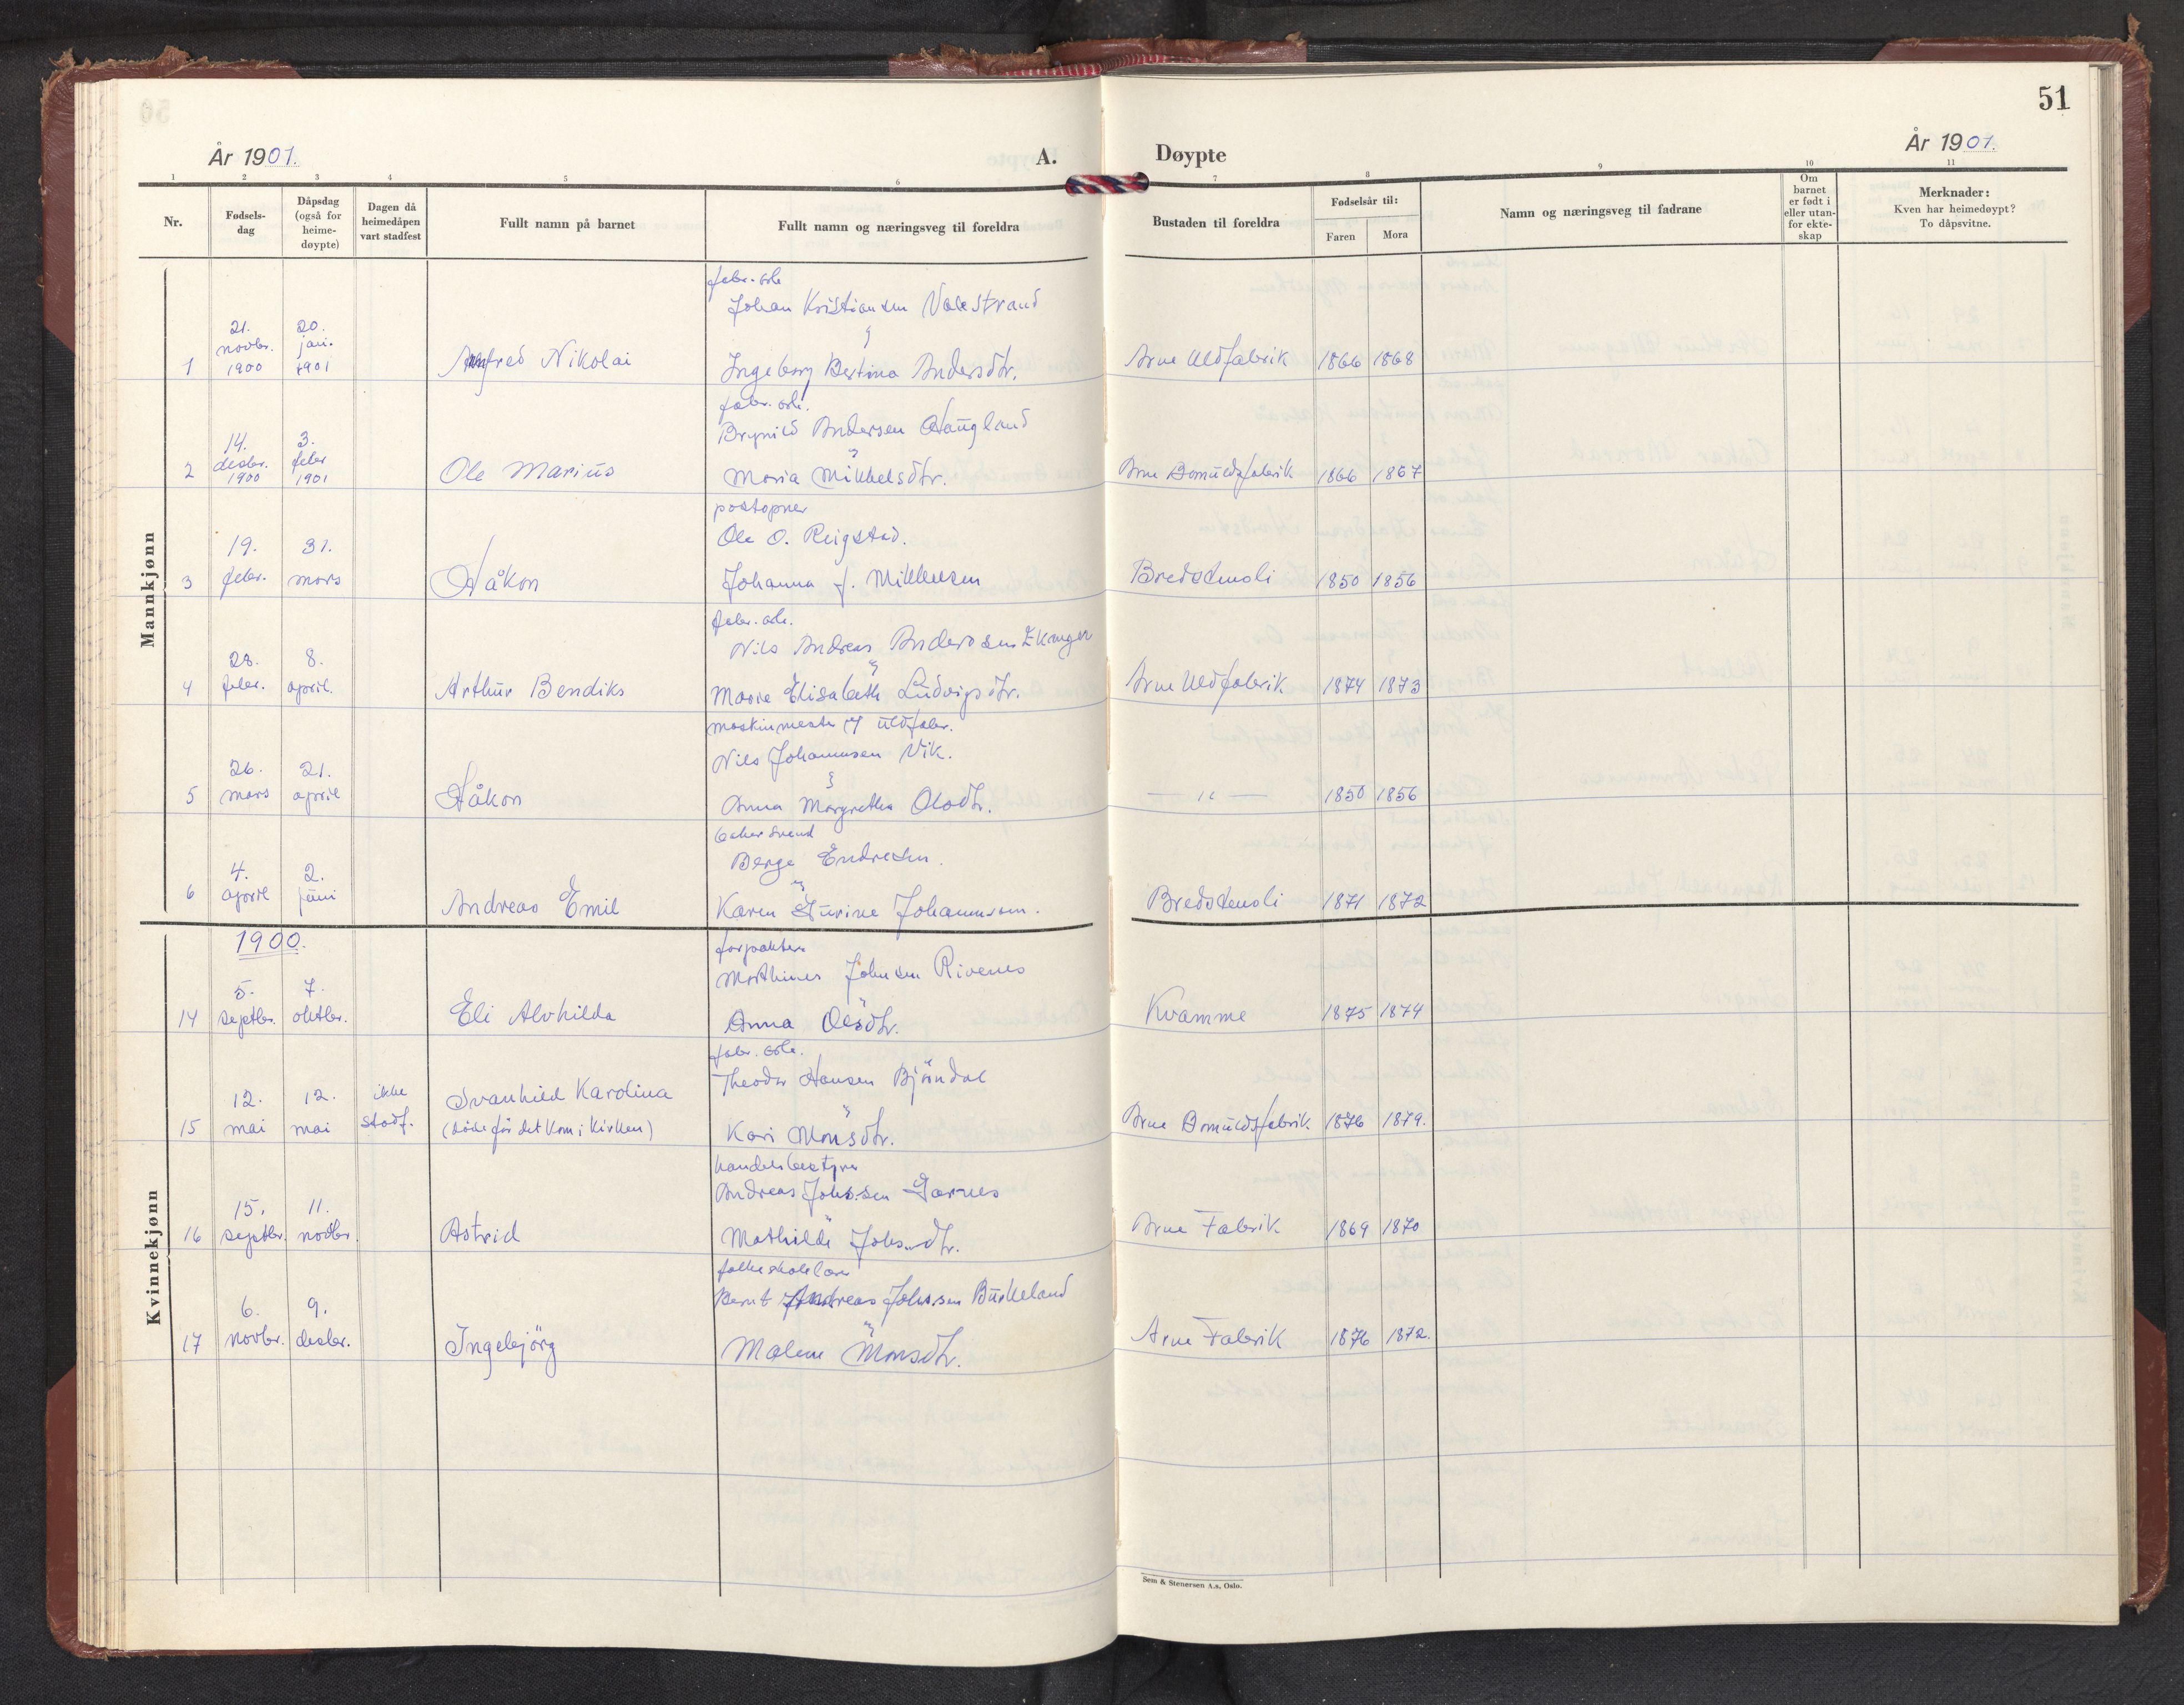 51
År 1901.
A.
Døypte
År 1901.
1 2 3 4 5 6 7 8 9 10 11
Nr.
Fødsels-
dag
Dåpsdag
(også for
heime-
døypte)
Dagen då
heimedåpen
vart stadfest
Fullt namn på barnet
Fullt namn og næringsveg til foreldra
Bustaden til foreldra
Fødselsår til:
Faren
Mora
Namn og næringsveg til fadrane
Om
barnet
er født i
eller utan-
for ekte-
skap
Merknader:
Kven har heimedøypt?
To dåpsvitne.
Mannkjønn
fabr. arb.
Johan Kristiansen Valestrand
21. 20.
novbr. jan.
1 1900 1901 Alfred Nikolai Ingeborg Bertina Andersdtr. Arne Uldfabrik 1866 1868
fabr. arb.
Brynild Andersen Haugland
14. 3.
desbr. febr
2 1900 1901 Ole Marius Maria Mikkelsdtr. Arne Bomuldsfabrik 1866 1867
postopner
Ole O. Reigstad.
19. 31.
3 febr. mars Håkon Johanna f. Mikkelsen Bredstenoli 1850 1856
fabr. arb.
Nils Andreas Andersen Ekanger
28. 8.
4 febr. april. Arthur Bendiks Marie Elisabeth Ludvigsdtr. Arne Uldfabrik 1874 1873
maskinmester v/ Uldfabr.
Nils Johannesen Vik.
26. 21.
5 mars april Håkon Anna Margretha Olsdtr. — " — 1850 1856
bakersvend
Berge Endresen.
4. 2.
6 april juni Andreas Emil Karen Sturine Johannesen. Bredstenoli 1871 1872
Kvinnekjønn
1900.
forpakter
Mathines Johnsen Rivenes
5. 7.
14 septbr. oktbr. Eli Alvhilda Anna Olsdtr. Kvamme 1875 1874
fabr. arb.
Theodor Hansen Bjöndal
12. 12. ikke Svanhild Karolina
15 mai mai stadf. (døde før det kom i kirken) Kari Monsdtr. Arne Bomuldsfabrik 1876 1879.
handelsbestyrer
Andreas Johs.sen Garnes
15. 11.
16 septbr. novbr. Astrid Mathilde Johs.dtr. Arne Fabrik 1869 1870
folkeskolelærer
Bernt Andreas Johs.sen Birkeland
6. 9.
17 novbr. desbr. Ingebjörg Malene Monsdtr. Arne Fabrik 1876 1872.
Sem & Stenersen A.s, Oslo.